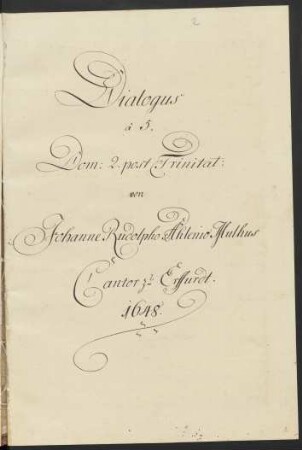 2
Dialogus
à 5.
Dom: 2. post Trinitat:
von
Johanne Rudolpho Ahlenio Mulhus
Cantor zu Erffurdt.
1648.